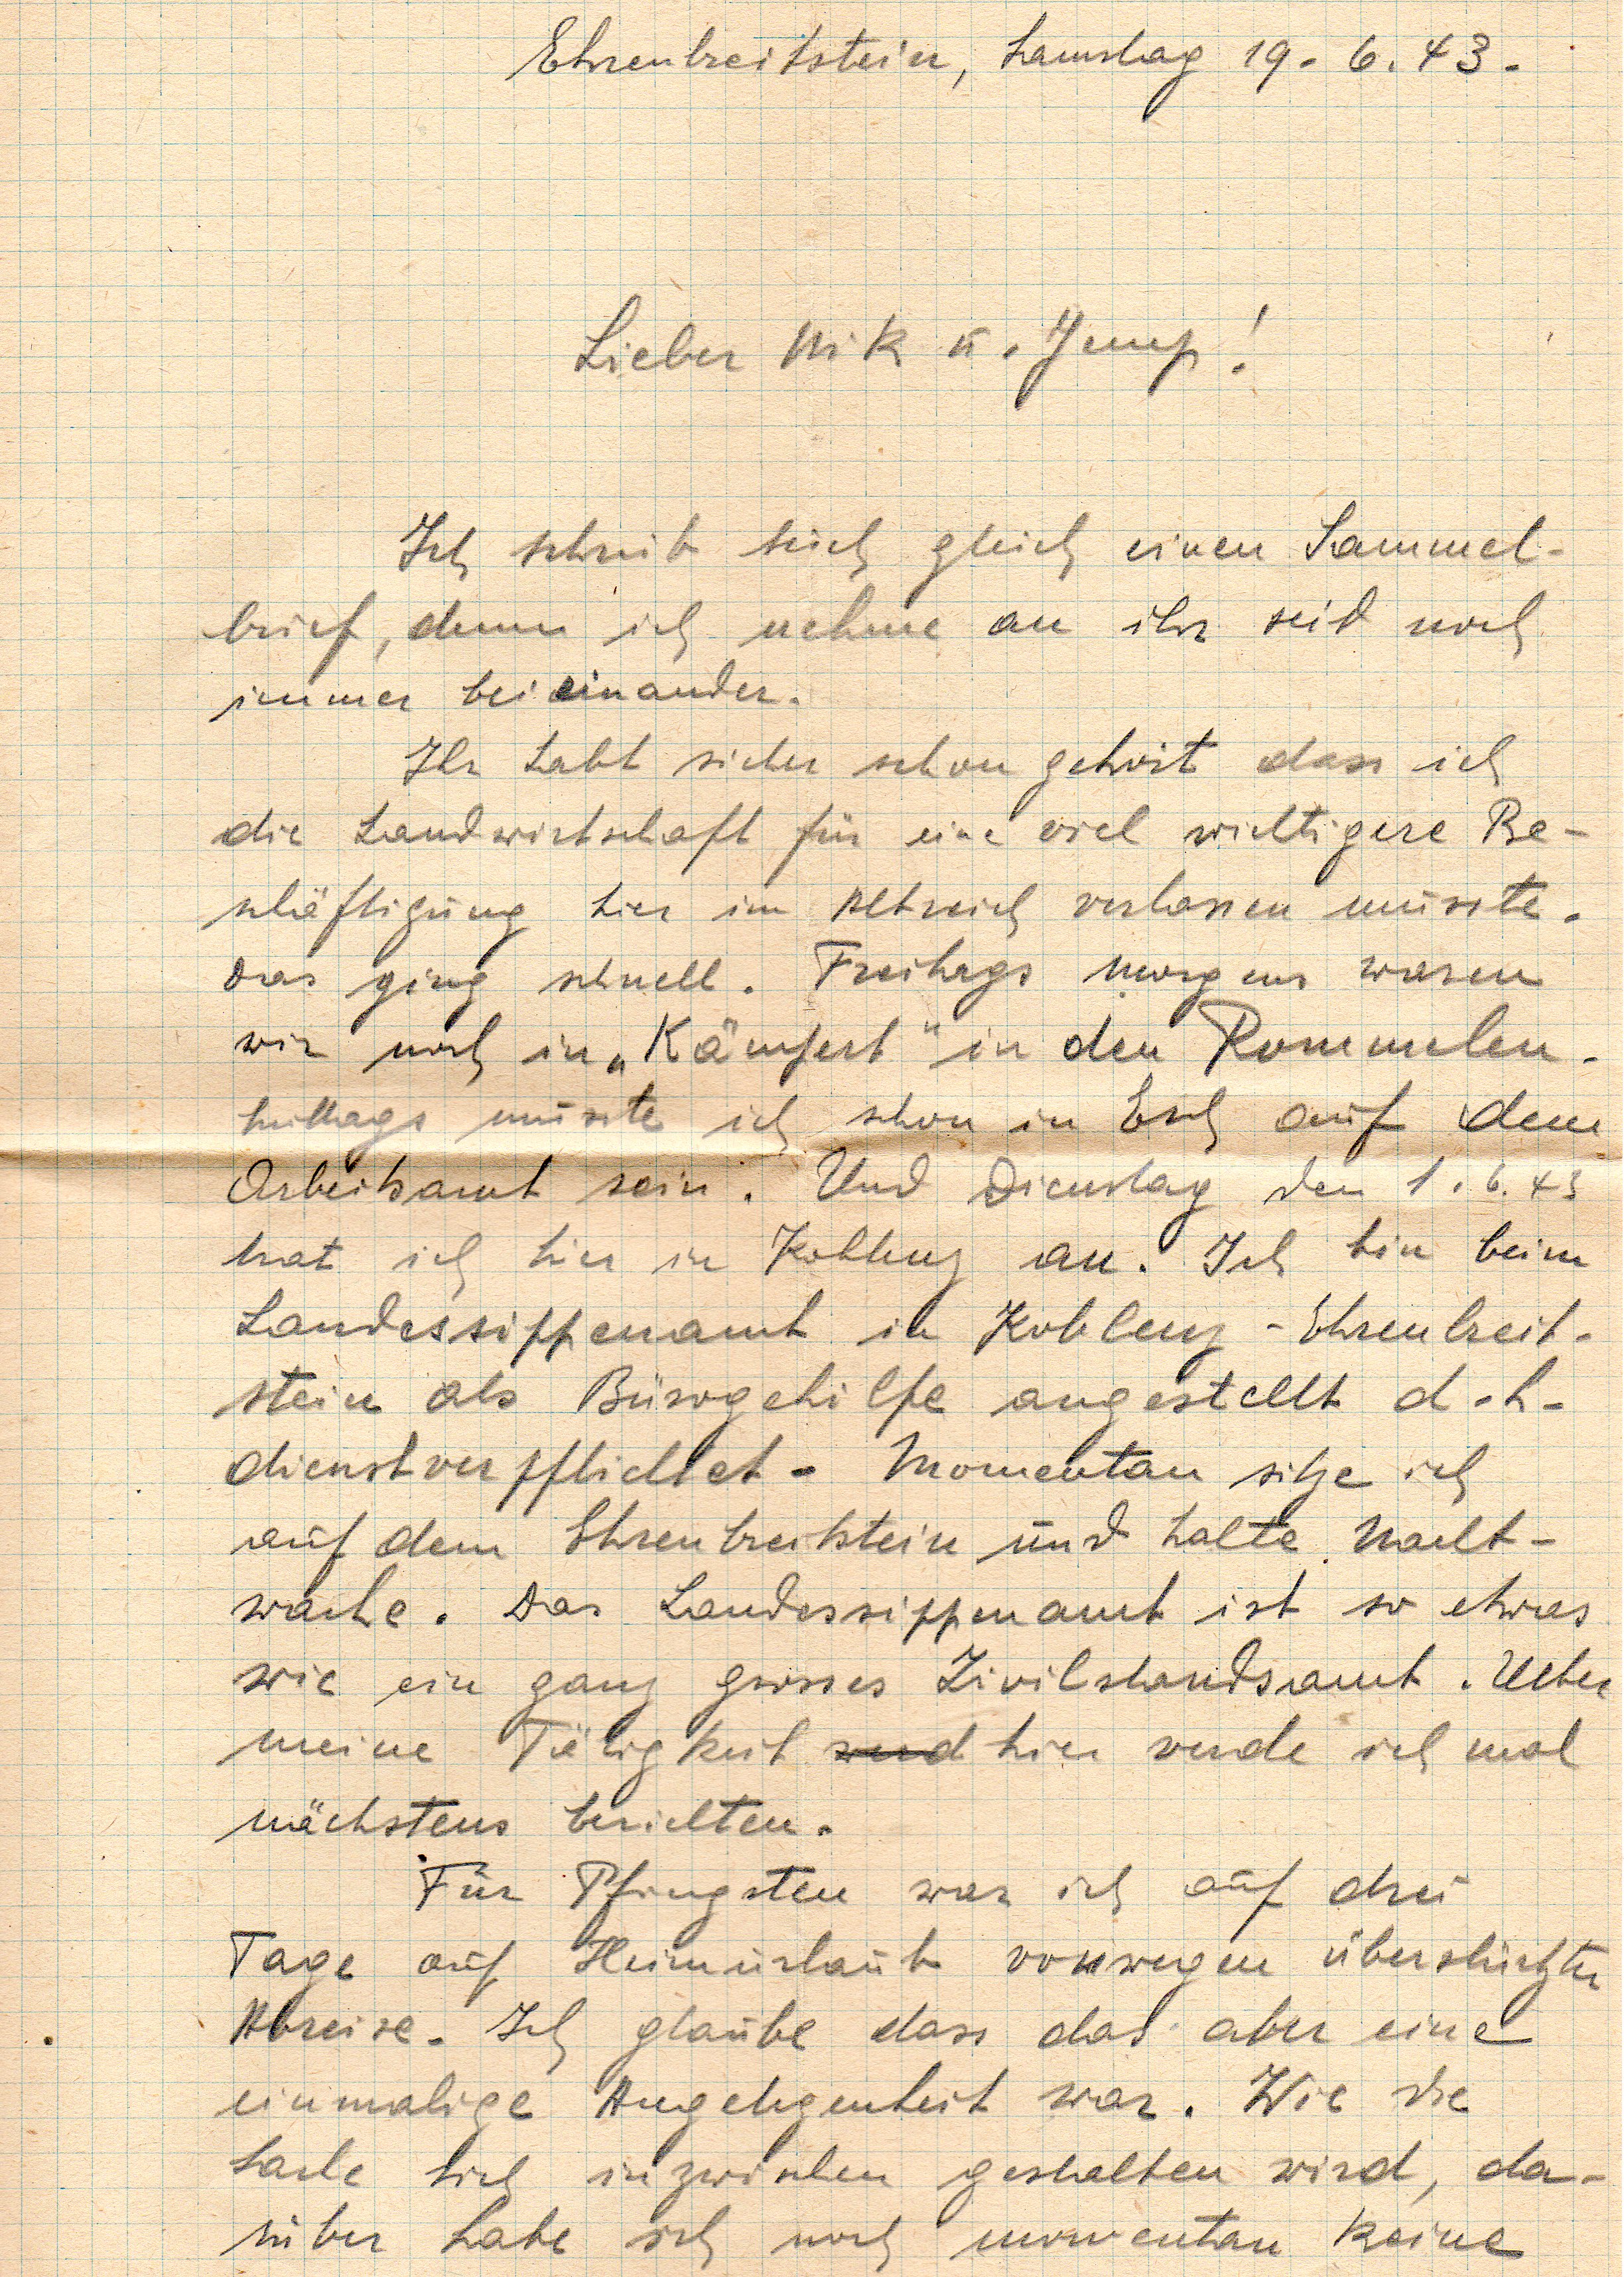 Ehrenbreitstein, Samstag 19.6.43.
Lieber Nik u. Jemp!
Ich schreib euch gleich einen Sammel-
brief, denn ich nehme an ihr seid noch
immer beieinander.
Ihr habt sicher schon gehört dass ich
die Landwirtschaft für eine viel wichtigere Be-
schäftigung hier im Altreich verlassen musste.
Das ging schnell. Freitags morgens waren
wir noch in „Kämpert" in den Rommelen.
mittags musste ich schon in Esch auf dem
Arbeitsamt sein. Und Dienstag den 1.6.43
trat ich hier in Koblenz an. Ich bin beim
Landessippenamt in Koblenz-Ehrenbreit-
stein als Bürogehilfe angestellt d.h.
dienstverpflichtet. Momentan sitze ich
auf dem Ehrenbreitstein und halte Nacht-
wache. Das Landessippenamt ist so etwas
wie ein ganz grosses Zivilstandsamt. Ueber
meine Tätigkeit hier werde ich mal
nächstens berichten.
Für Pfingsten war ich auf drei
Tage auf Heimurlaub vonwegen überstürzter
Abreise. Ich glaube dass das aber eine
einmalige Angelegenheit war. Wie die
Sache sich inzwischen gestalten wird, da-
rüber habe ich noch momentan keine